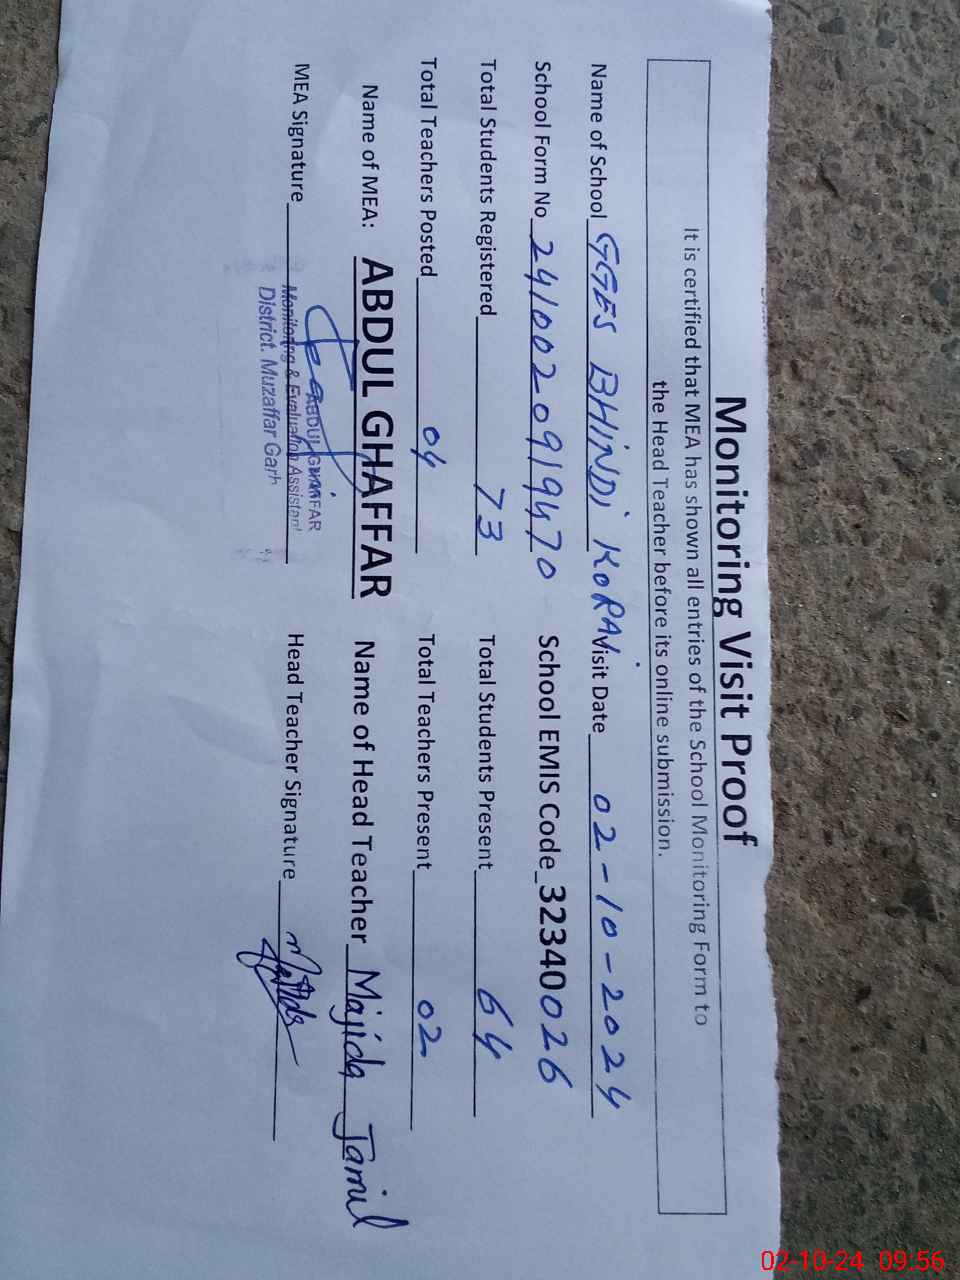 Monitoring Visit Proof
It is certified that MEA has shown all entries of the School Monitoring Form to
the Head Teacher before its online submission.
Name of School GGES BHINDI KORAI Visit Date 02-10-2024
School Form No 2410020919470 School EMIS Code 32340026
Total Students Registered 73 Total Students Present 64
Total Teachers Posted 04 Total Teachers Present 02
Name of MEA: ABDUL GHAFFAR Name of Head Teacher Majida Jamil
MEA Signature Head Teacher Signature
ABDUL GHAFFAR
Monitoring & Evaluation Assistant
District. Muzaffar Garh
02-10-24 09:56